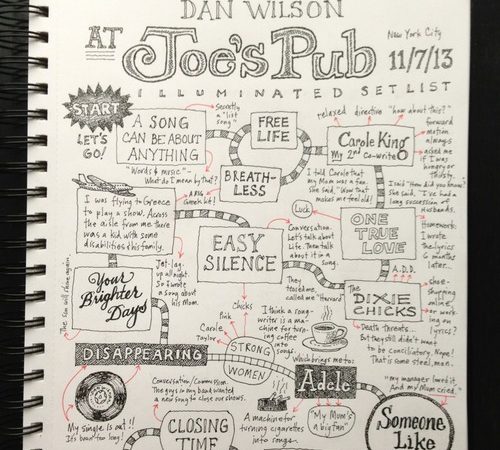 DAN WILSON
AT Joe's Pub
New York City
11/7/13
ILLUMINATED SETLIST
START
LET'S GO!
A SONG
CAN BE ABOUT
ANYTHING
Secretly
a "list
song"
"Words & music" –
What do I mean by that?
FREE
LIFE
relaxed directive "how about this?"
Carole King
My 2nd co-write
forward
motion
always
asked me
if I was
hungry or
thirsty.
BREATH-
LESS
A BIG
Greek hit!
I told Carole that
my Mom was a fan.
She said, "Wow that
makes me feel old!
I said "How did you know?"
She said, "I've had a
long succession of
husbands.
I was flying to Greece
to play a show. Across
the aisle from me there
was a kid with some
disabilities and his family.
Luck
ONE
TRUE
LOVE
Homework:
I wrote
the lyrics
6 months
later.
A.D.D.
EASY
SILENCE
Conversation.
Let's talk about
life. Then talk
about it in a
song.
They teased me,
called me "Harvard"
Your
Brighter
Days
Jet-lag,
up all night.
So I wrote
a song about
his Mom.
The sun will shine again.
The
DIXIE
CHICKS
shoe-
shopping
online,
or working
on
lyrics?
Death threats...
But they still didn't want
to be conciliatory. Nope!
That is some steel, man.
Chicks
Pink
Carole
Taylor
I think a song-
writer is a ma-
chine for turn-
ing coffee
into
songs.
DISAPPEARING
STRONG
WOMEN
Which brings me to:
Adele
"my manager loved it,
and my Mom cried."
Conversation/Commission.
The guys in my band wanted
a new song to close our shows.
My single is out!!
It's been too long!
CLOSING
TIME
A machine for
turning cigarettes
into songs.
"My Mum's
a big fan"
Someone
Like